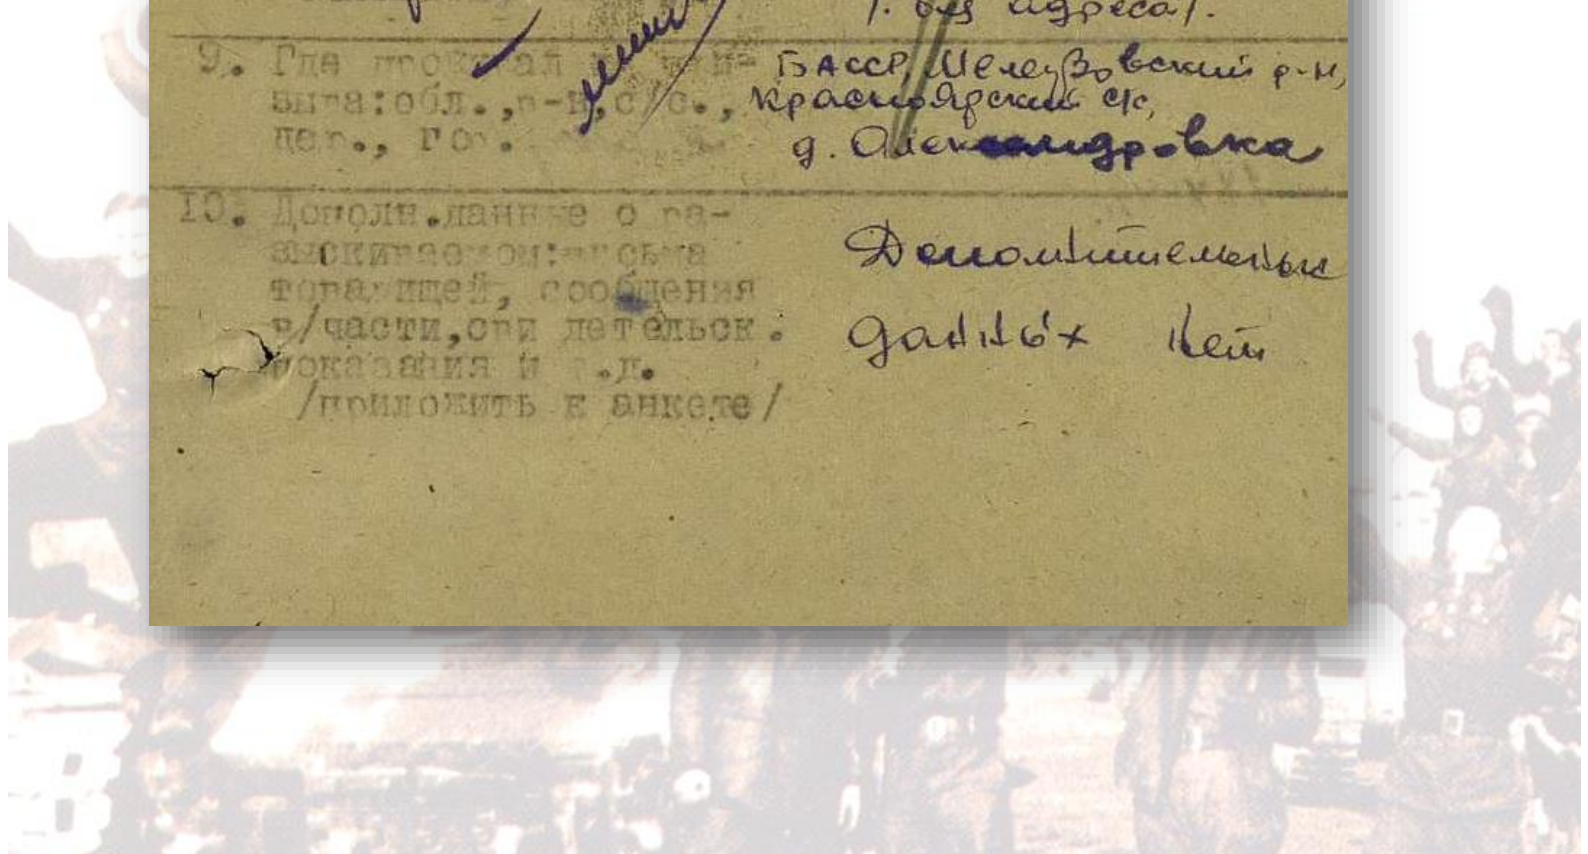 /. без адреса/.
9. Где проживал
зыва:обл.,р-н,с/с.,
дер., гор.
БАССР, Мелеузовский р-н,
Красноярский с/с,
д. Александровка
10. Дополн.данные о ра-
зыскиваемом:письма
товарищей, сообщения
в/части,свидетельск.
показания и т.д.
/приложить к анкете/
Дополнительных
данных нет